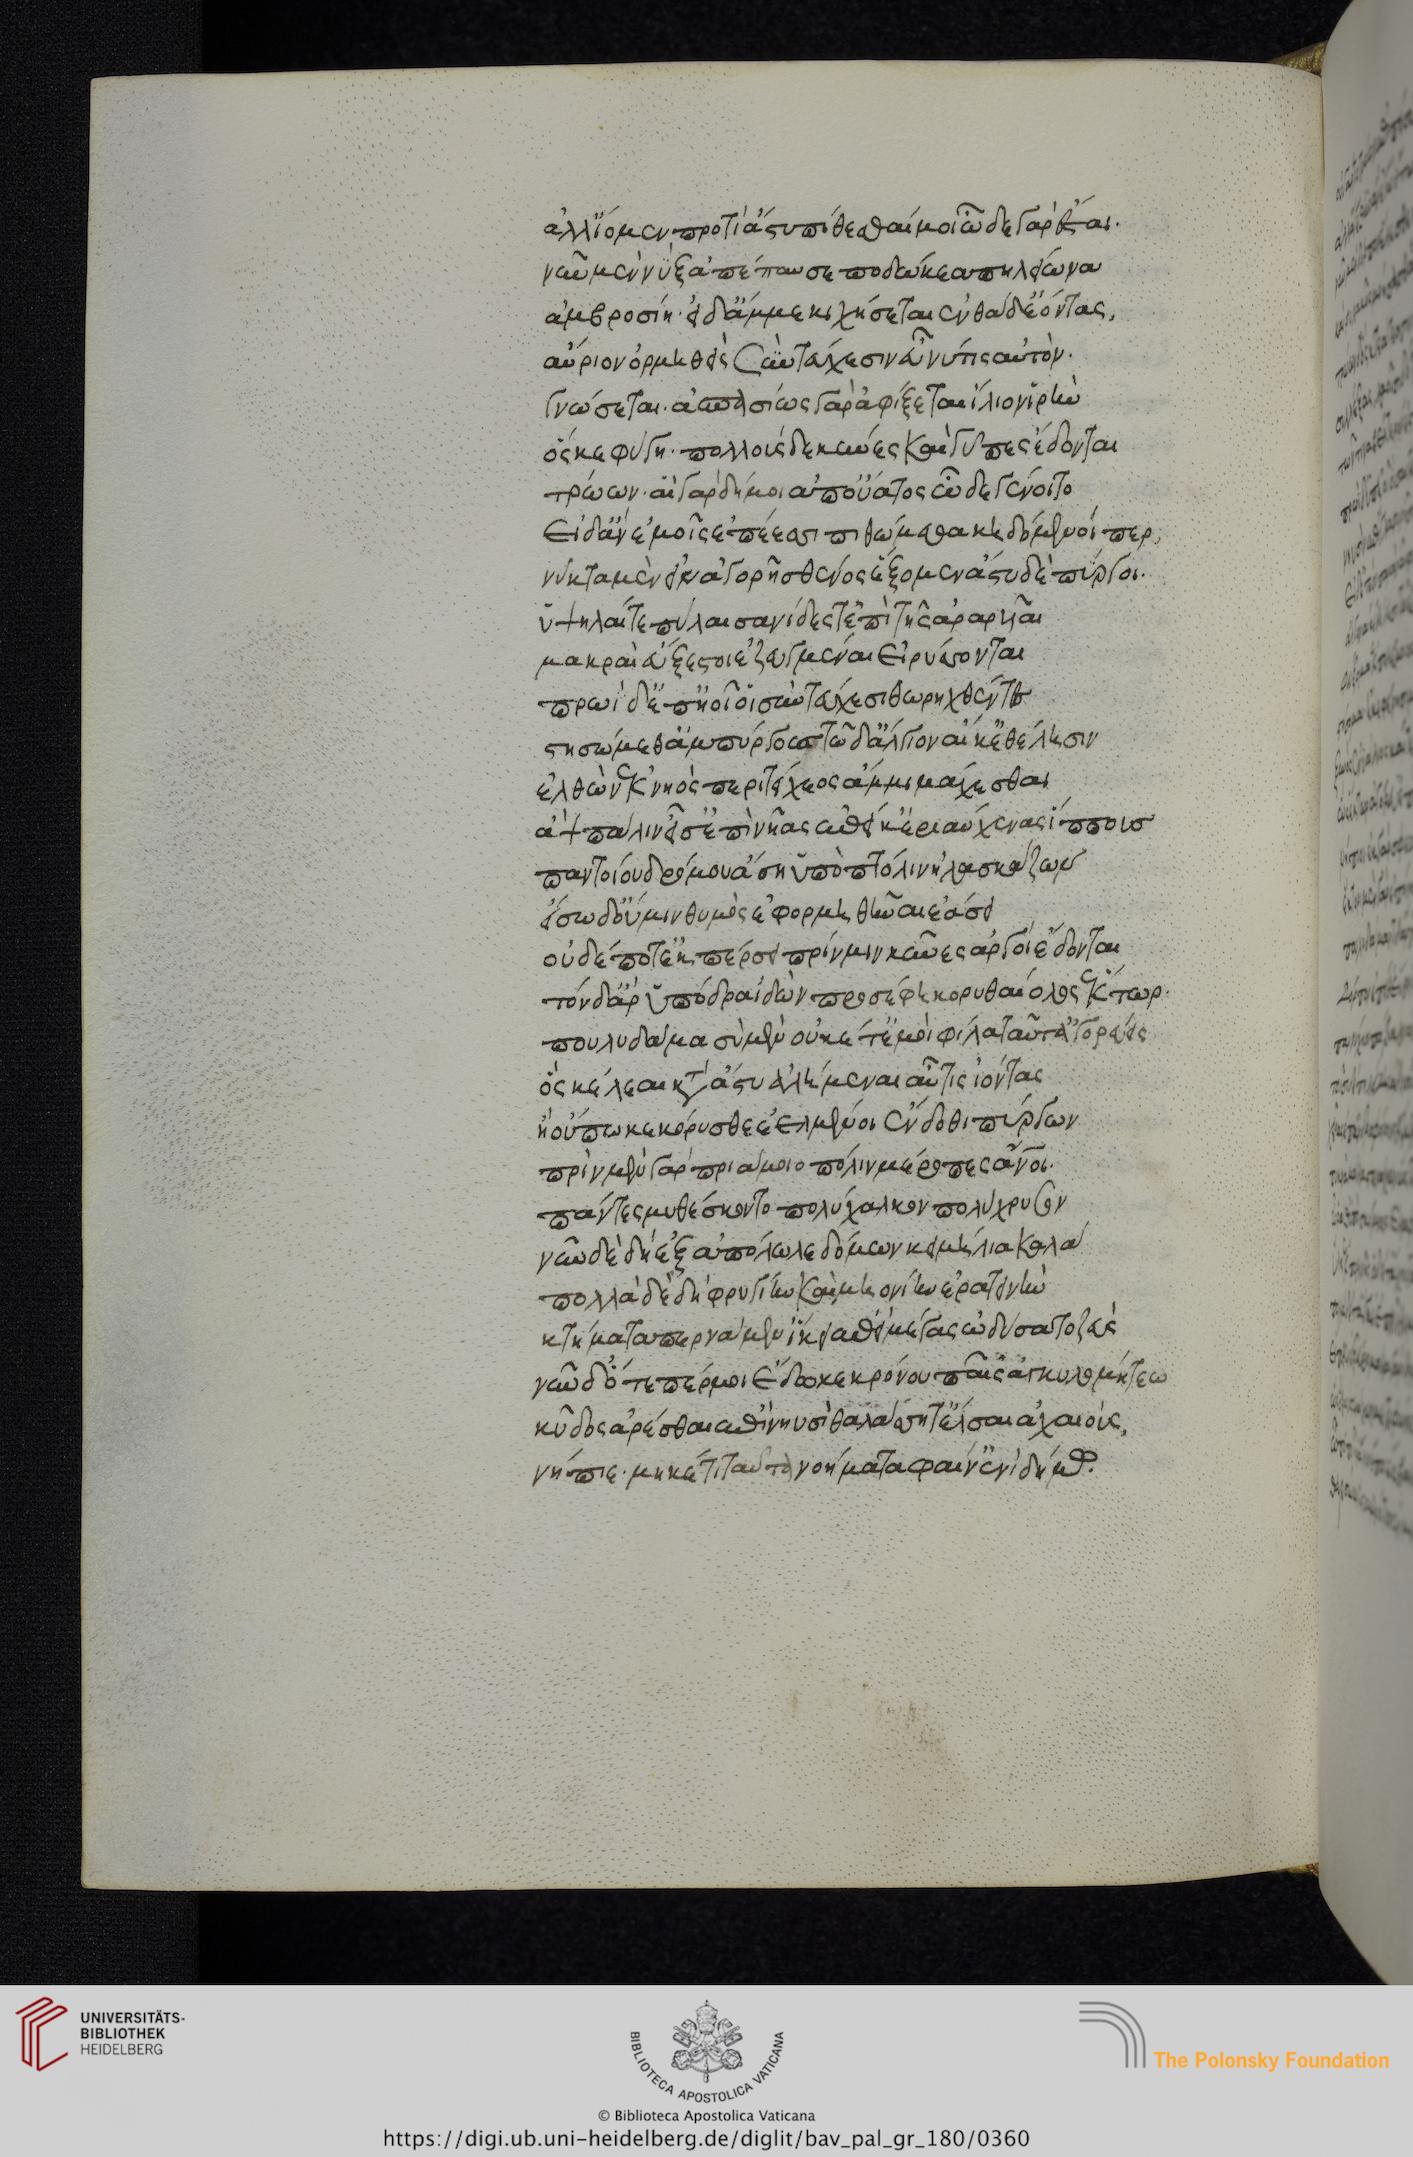 ἀλλ' ἴομεν προτὶ ἄστυ πίθεσθαί μοι ὧδε γὰρ ἔσται.
νῦν μὲν νὺξ ἀπέπαυσε ποδώκεα πηλείωνα
ἀμβροσίη· εἰ δ' ἄμμε κιχήσεται ἐνθάδ' ἐόντας,
αὔριον ὁρμηθεὶς σὺν τεύχεσιν εὖ νύ τις αὐτὸν.
γνώσεται· ἀσπασίως γὰρ ἀφίξεται ἴλιον ἱρὴν
ὅς κε φύγη· πολλοὺς δὲ κύνες καὶ γῦπες ἔδονται
τρώων· αἲ γὰρ δή μοι ἀπ' οὔατος ὧδε γένοιτο
εἰ δ' ἂν ἐμοῖς ἐπέεσσι πιθώμεθα κηδόμενοί περ,
νύκτα μὲν εἰν ἀγορῇ σθένος ἕξομεν ἄστυ δὲ πύργοι.
ὑψηλαί τε πύλαι σανίδες τ' ἐπὶ τῇς ἀραρυῖαι
μακραὶ ἐύξεστοι ἐζευγμέναι εἰρύσσονται
πρωὶ δ' ὑπηοῖοι σὺν τεύχεσι θωρηχθέντες
στησόμεθ' ἂμ πύργους τῷ δ' ἄλγιον αἴ κ' ἐθέλησιν
ἐλθὼν ἐκ νηὸς περὶ τείχεος ἄμμι μάχεσθαι
ἂψ πάλιν εἶσ' ἐπὶ νῆας ἐπεί κ' ἐριαύχενας ἵππους
παντοίου δρόμου ἄση ὑπὸ πτόλιν ἠλασκάζων
εἴσω δ' οὔ μιν θυμὸς ἐφορμηθῆναι ἐάσει
οὐδέ ποτ' ἐκπέρσει πρίν μιν κύνες ἀργοὶ ἔδονται
τὸν δ' ἄρ' ὑπόδρα ἰδὼν προσέφη κορυθαίολος ἕκτωρ.
πουλυδάμα σὺ μὲν οὐκέτ' ἐμοὶ φίλα ταῦτ' ἀγορεύεις
ὃς κέλεαι κατὰ ἄστυ ἀλήμεναι αὖτις ἰόντας
ἢ οὔπω κεκόρυσθε ἐελμένοι ἔνδοθι πύργων
πρὶν μὲν γὰρ πριάμοιο πόλιν μέροπες ἄνοι.
πάντες μυθέσκοντο πολύχαλκον πολύχρυσον
νῦν δὲ δὴ ἐξαπόλωλε δόμων κειμήλια καλά
πολλὰ δὲ δὴ φρυγίην καὶ μηονίην ἐρατεινὴν
κτήματα περνάμεν' ἵκει ἐπεὶ μέγας ὠδύσατο ζεὺς
νῦν δ' ὅτε πέρ μοι ἔδωκε κρόνου παῖς ἀγκυλομήτεω
κῦδος ἀρέσθαι ἐπὶ νηυσὶ θαλάσση τ' ἔλσαι ἀχαιοὺς,
νήπιε· μηκέτι ταῦτα νοήματα φαῖν' ἐνὶ δήμω.
UNIVERSITÄTS-
BIBLIOTHEK
HEIDELBERG
BIBLIOTECA APOSTOLICA VATICANA
The Polonsky Foundation
© Biblioteca Apostolica Vaticana
https://digi.ub.uni-heidelberg.de/diglit/bav_pal_gr_180/0360